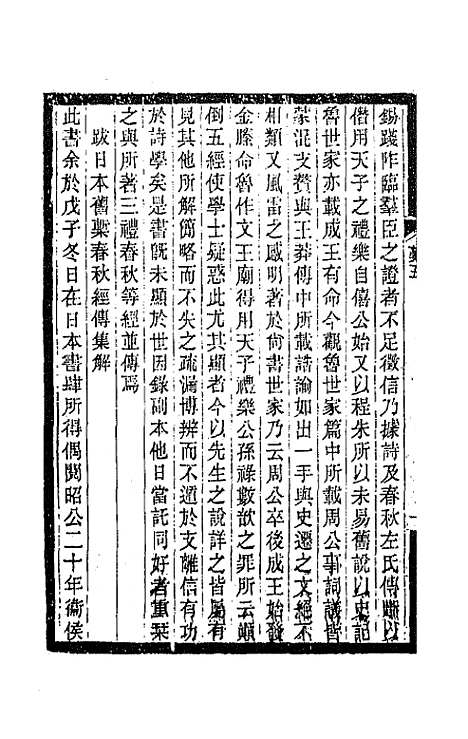 錫踐阼臨羣臣之證者不足徵信乃據詩及春秋左氏傳斷以
僭用天子之禮樂自僖公始又以程朱所以未易舊說以史記
魯世家亦載成王有命今觀魯世家篇中所載周公事詞議皆
蒙混支贅與王莽傳中所載誥論如出一手與史遷之文絕不
相類又風雷之感明著於尚書世家乃云周公卒後成王始發
金縢命魯作文王廟得用天子禮樂公孫祿數歆之罪所云顛
倒五經使學士疑惑此尤其顯者今以先生之說詳之皆屬有
見其他所解簡略而不失之疏漏博辨而不遁於支離信有功
於詩學矣是書旣未顯於世因錄副本他日當託同好者重栞
之與所著三禮春秋等經並傳焉
跋日本舊槧春秋經傳集解
此書余於戊子冬日在日本書肆所得偶閱昭公二十年衞侯